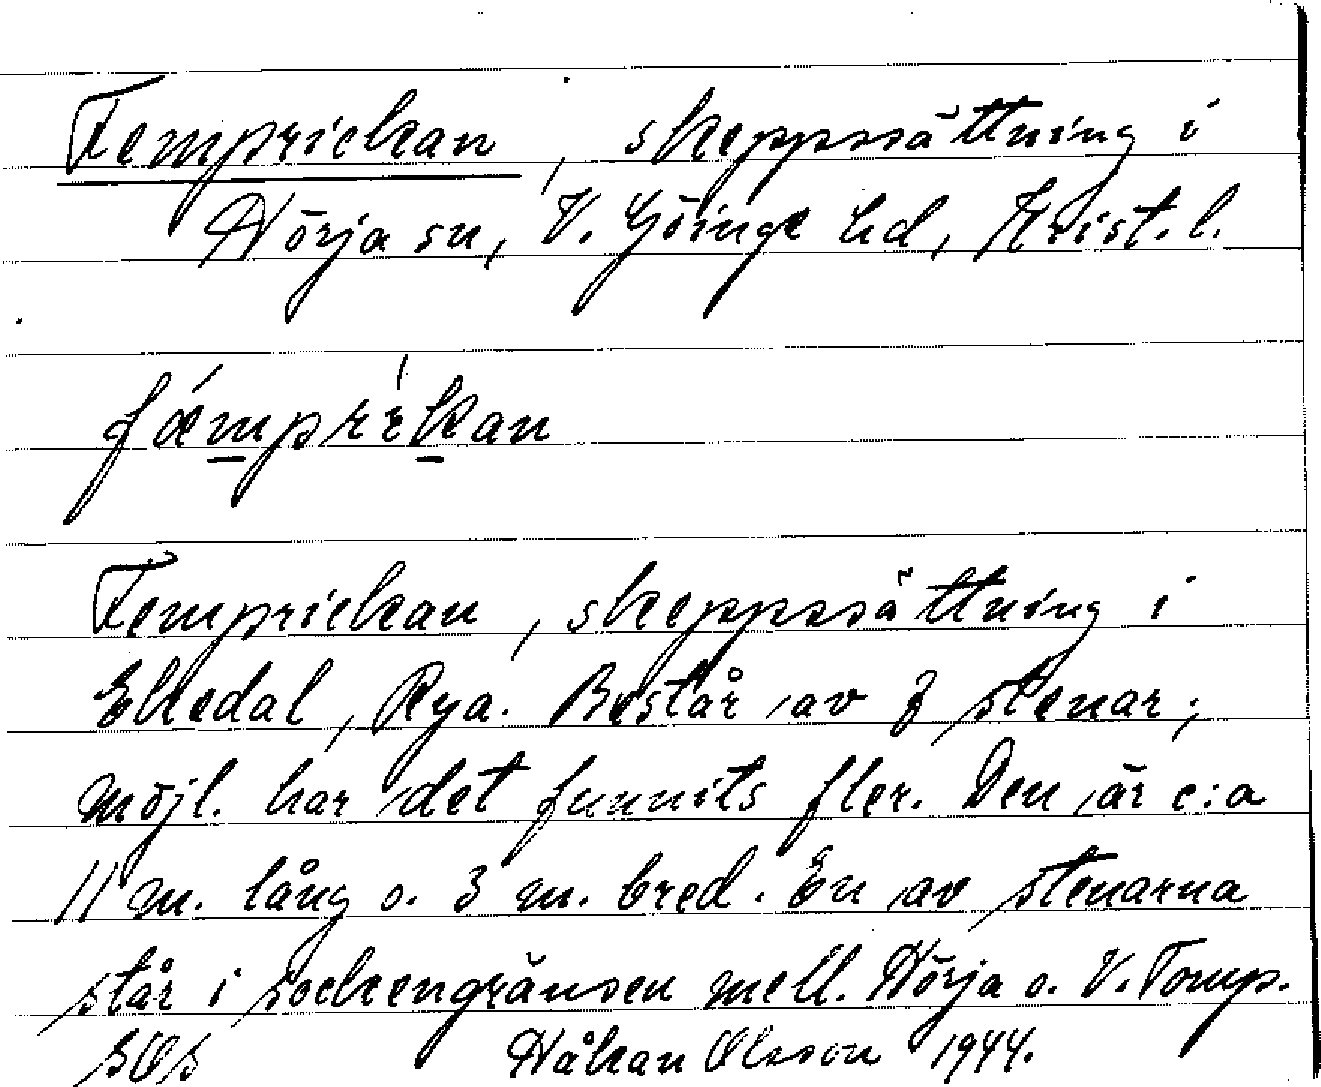 Femprickan, skeppssättning i
Hörja sn, V. Göinge hd, Krist. l.
fǽmprìkan
Femprickan, skeppssättning i
Ekedal, Rya. Består av 8 stenar;
möjl. har det funnits fler. Den är c:a
11 m. lång o. 3 m. bred. En av stenarna
står i sockengränsen mell. Hörja o. V. Torup.
Håkan Olsson 1944.